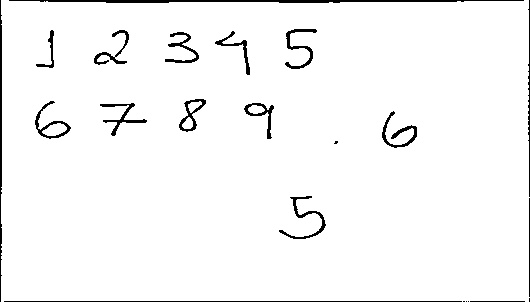 1 2 3 4 5
6 7 8 9 . 6
5